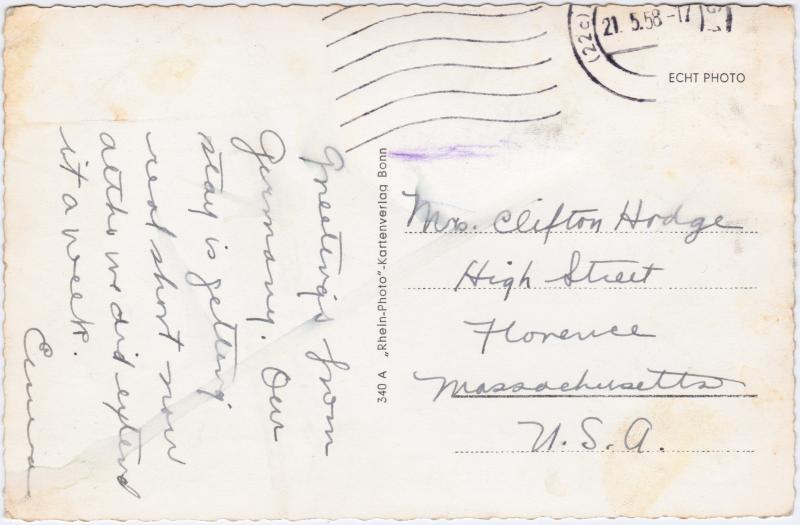 Greetings from
Germany. Our
stay is getting
real short now
altho we did extend
it a week.
Emma
340 A „Rhein-Photo"-Kartenverlag Bonn
(22c)
21. 5.58 -17
ECHT PHOTO
Mrs. Clifton Hodge
High Street
Florence
Massachusetts
U.S.A.